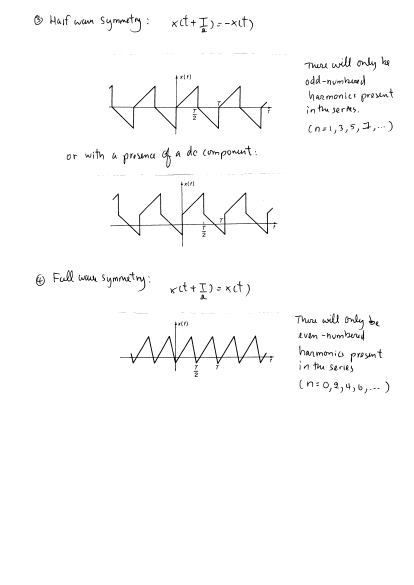 ③ Half wave symmetry: x(t + T/2) = -x(t)
There will only be
odd-numbered
harmonics present
in the series.
(n = 1, 3, 5, 7, ...)
x(t)
T/2 T t
or with a presence of a dc component:
x(t)
T/2 T t
④ Full wave symmetry: x(t + T/2) = x(t)
There will only be
even-numbered
harmonics present
in the series
(n = 0, 2, 4, 6, ...)
x(t)
T/2 T t